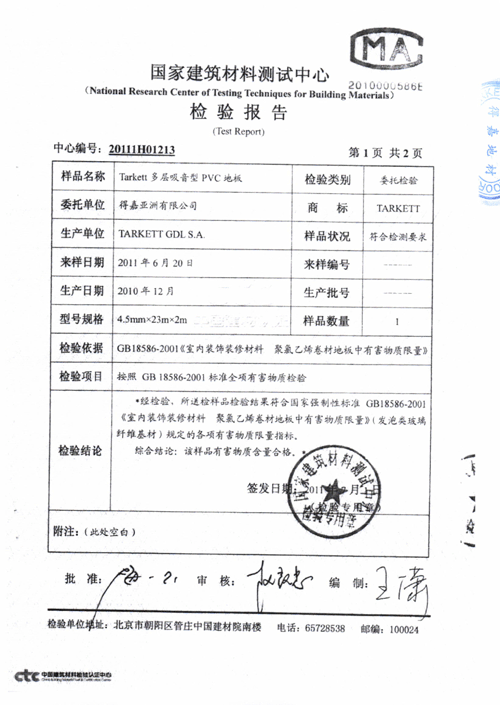 MA
2010000586E
国家建筑材料测试中心
(National Research Center of Testing Techniques for Building Materials)
检验报告
(Test Report)
中心编号：20111H01213
第1页 共2页
样品名称 Tarkett 多层吸音型 PVC 地板 检验类别 委托检验
委托单位 得嘉亚洲有限公司 商标 TARKETT
生产单位 TARKETT GDL S.A. 样品状况 符合检测要求
来样日期 2011 年 6 月 20 日 来样编号 ------
生产日期 2010 年 12 月 生产批号 ------
型号规格 4.5mm×23m×2m 样品数量 1
检验依据 GB18586-2001《室内装饰装修材料 聚氯乙烯卷材地板中有害物质限量》
检验项目 按照 GB 18586-2001 标准全项有害物质检验
检验结论
*经检验，所送检样品检验结果符合国家强制性标准 GB18586-2001
《室内装饰装修材料 聚氯乙烯卷材地板中有害物质限量》（发泡类玻璃
纤维基材）规定的各项有害物质限量指标。
综合结论：该样品有害物质含量合格。
签发日期：
（检验专用章）
国家建筑材料测试中心
检验专用章
附注：（此处空白）
批准： 审核： 编制：
检验单位地址：北京市朝阳区管庄中国建材院南楼 电话：65728538 邮编：100024
ctc 中国建筑材料检验认证中心
得嘉地材